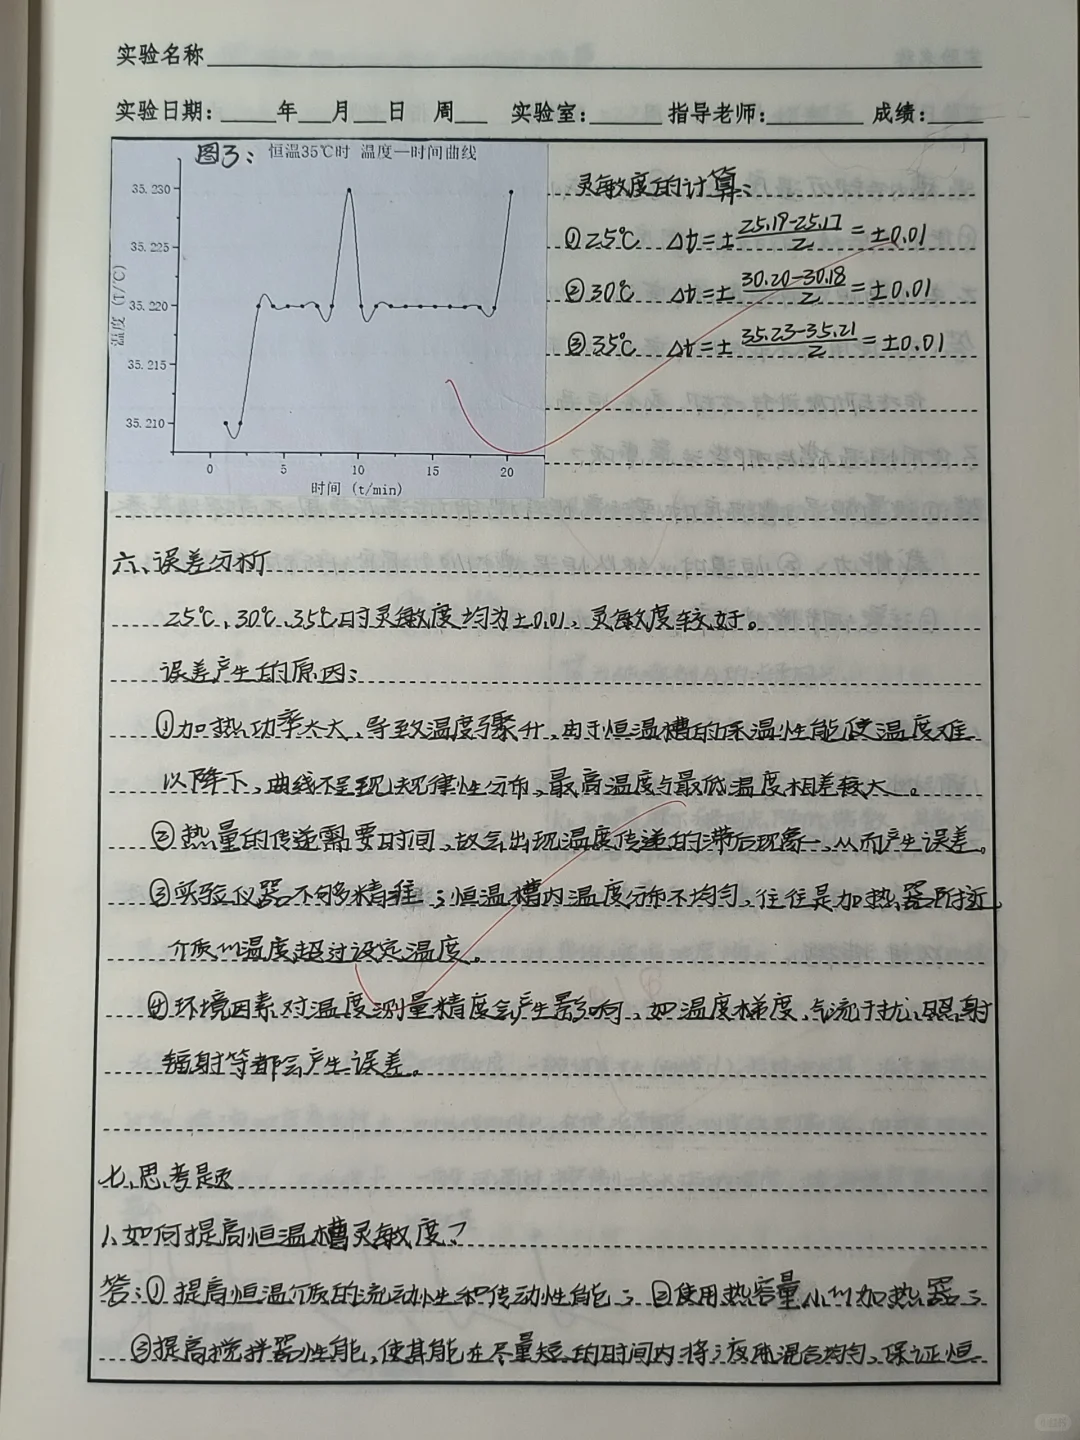 实验名称
实验日期: 年 月 日 周 实验室: 指导老师: 成绩:
图3: 恒温35℃时 温度—时间曲线
35.230
35.225
35.220
35.215
35.210
温度 (T/℃)
0 5 10 15 20
时间 (t/min)
灵敏度的计算:
①25℃ Δt=±(25.19-25.17)/2=±0.01
②30℃ Δt=±(30.20-30.18)/2=±0.01
③35℃ Δt=±(35.23-35.21)/2=±0.01
六、误差分析
25℃、30℃、35℃时灵敏度均为±0.01,灵敏度较好。
误差产生的原因:
①加热功率太大,导致温度骤升,由于恒温槽的保温性能使温度难
以降下,曲线不呈现规律性分布,最高温度与最低温度相差较大。
②热量的传递需要时间,故会出现温度传递的滞后现象,从而产生误差。
③实验仪器不够精准;恒温槽内温度分布不均匀,往往是加热器附近
介质的温度超过设定温度。
④环境因素对温度测量精度会产生影响,如温度梯度、气流干扰、照射
辐射等都会产生误差。
七、思考题
1、如何提高恒温槽灵敏度?
答:①提高恒温介质的流动性和传动性能;②使用热容量小的加热器;
③提高搅拌器性能,使其能在尽量短的时间内将液体混合均匀,保证恒